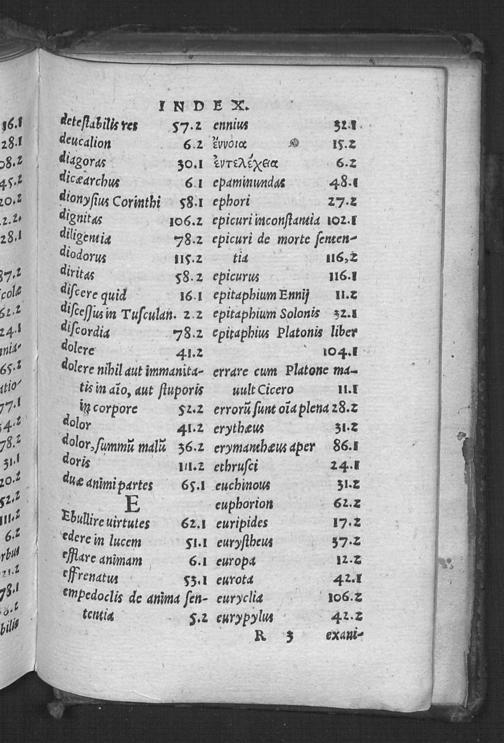 INDEX.
detestabilis res 57.2
deucalion 6.2
diagoras 30.1
dicæarchus 6.1
dionysius Corinthi 58.1
dignitas 106.2
diligentia 78.2
diodorus 115.2
diritas 58.2
discere quid 16.1
discessus in Tusculan. 2.2
discordia 78.2
dolere 41.2
dolere nihil aut immanita-
tis in aīo, aut stuporis
in corpore 52.2
dolor 41.2
dolor, summū malū 36.2
doris 111.2
duæ animi partes 65.1
E
Ebullire uirtutes 62.1
edere in lucem 51.1
efflare animam 6.1
effrenatus 53.1
empedoclis de anima sen-
tentia 5.2
ennius 32.1
ἔννοια 15.2
ἐντελέχεια 6.2
epaminundas 48.1
ephori 27.2
epicuri inconstantia 102.1
epicuri de morte senten-
tia 116,2
epicurus 116.1
epitaphium Ennij 11.2
epitaphium Solonis 32.1
epitaphius Platonis liber
104.1
errare cum Platone ma-
uult Cicero 11.1
errorū sunt oīa plena 28.2
erythæus 31.2
erymanthæus aper 86.1
ethrusci 24.1
euchinous 31.2
euphorion 62.2
euripides 17.2
eurystheus 37.2
europa 12.2
eurota 42.1
euryclia 106.2
eurypylus 42.2
R 3 exani-
36.1
28.1
08.2
45.2
20.2
2.2.
28.1
87.2
icolæ
62.2
24.1
inia-
65.2
atio-
77.1
54.2
78.2
31.1
20.2
52.2
111.2
6.2
orbus
21.2
78.1
bilis